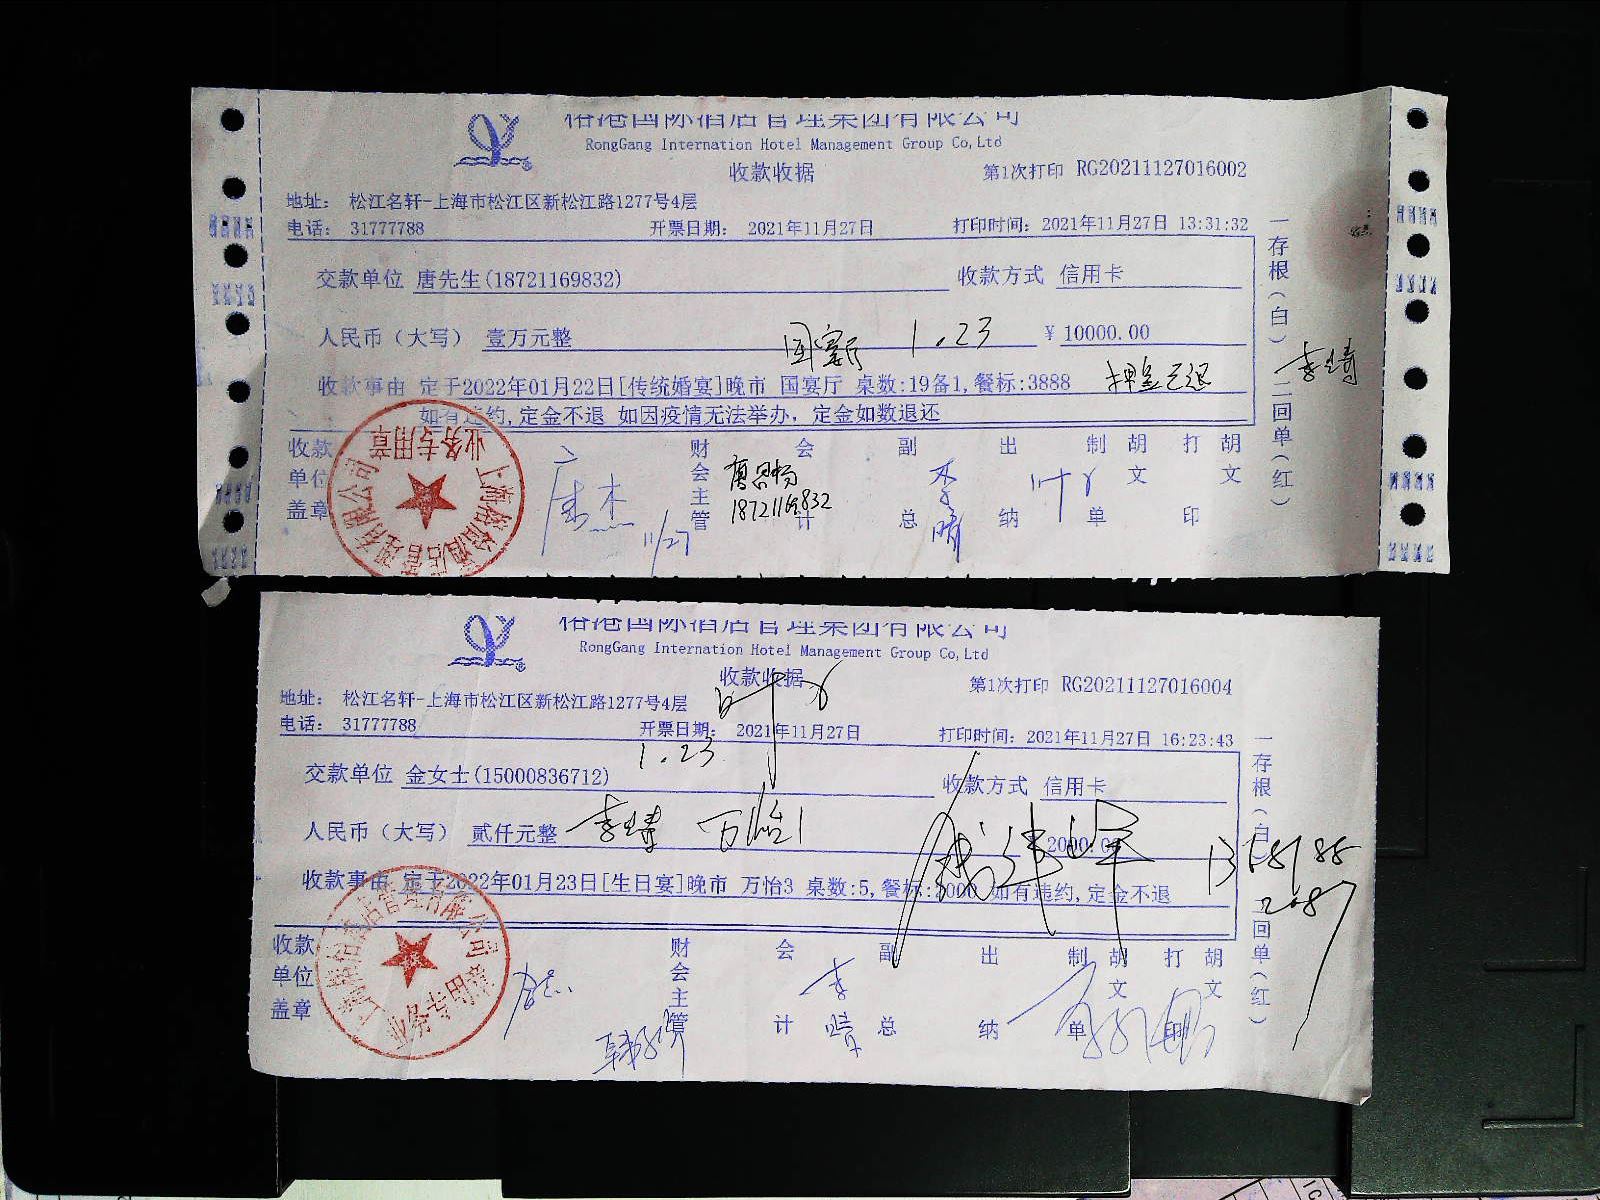 榕港国际酒店管理集团有限公司
RongGang Internation Hotel Management Group Co,Ltd
收款收据
第1次打印 RG20211127016002
地址: 松江名轩-上海市松江区新松江路1277号4层
电话: 31777788 开票日期: 2021年11月27日 打印时间: 2021年11月27日 13:31:32
交款单位 唐先生(18721169832) 收款方式 信用卡
人民币（大写） 壹万元整 国宴厅 1.23 ¥ 10000.00
收款事由 定于2022年01月22日[传统婚宴]晚市 国宴厅 桌数:19备1,餐标:3888 押金已退
如有违约,定金不退 如因疫情无法举办, 定金如数退还
收款单位盖章 财会主管 会计 副总 出纳 制单 胡文 打印 胡文
18721169832
11/27
一存根(白) 二回单(红)
业务专用章
榕港国际酒店管理集团有限公司
RongGang Internation Hotel Management Group Co,Ltd
收款收据
第1次打印 RG20211127016004
地址: 松江名轩-上海市松江区新松江路1277号4层
电话: 31777788 开票日期: 2021年11月27日 打印时间: 2021年11月27日 16:23:43
1.23
交款单位 金女士(15000836712) 收款方式 信用卡
人民币（大写） 贰仟元整 万怡1 2000.00
收款事由 定于2022年01月23日[生日宴]晚市 万怡3 桌数:5,餐标:2000 如有违约,定金不退
收款单位盖章 财会主管 会计 副总 出纳 制单 胡文 打印 胡文
一存根(白) 二回单(红)
业务专用章